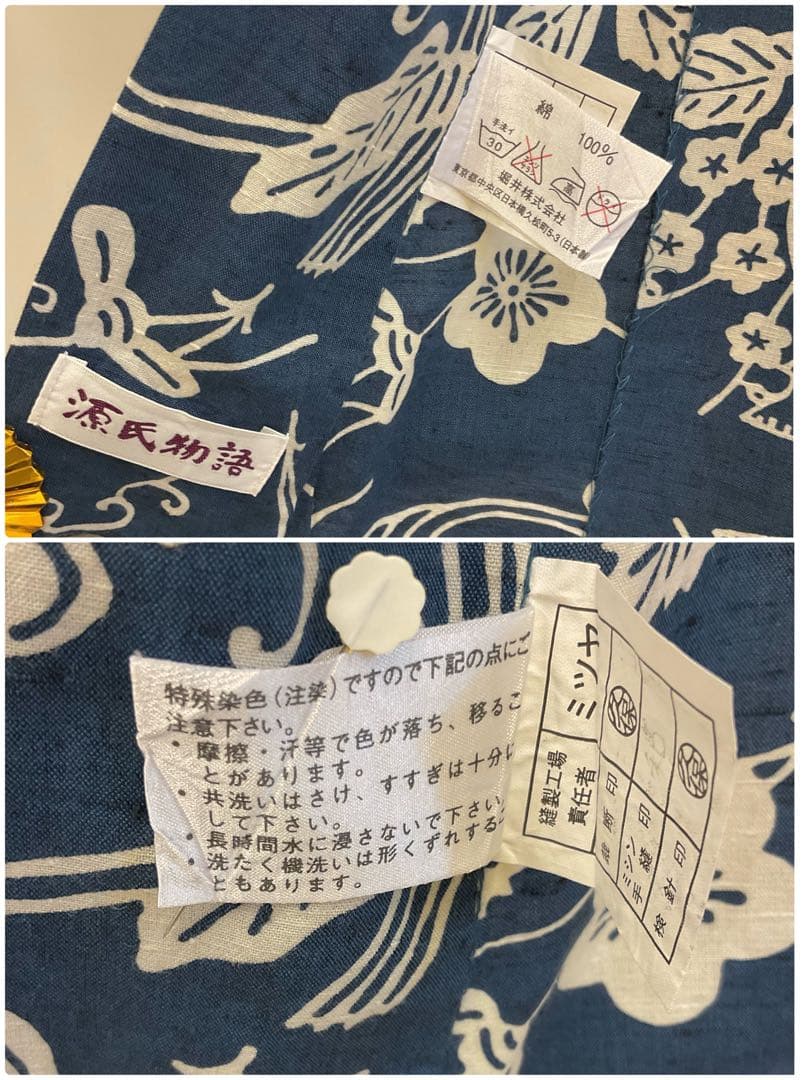 綿 100%
手洗イ
30
エンソ
サラシ
高
ドライ
堀井株式会社
東京都中央区日本橋久松町5-3(日本製
源氏物語
特殊染色(注染)ですので下記の点にご
注意下さい。
・摩擦・汗等で色が落ち、移るこ
とがあります。
・共洗いはさけ、すすぎは十分に
して下さい。
・長時間水に浸さないで下さい。
・洗たく機洗いは形くずれするこ
ともあります。
縫製工場
責任者
ミツヤ
裁断印
ミシン
手縫印
検針印
久保
久保